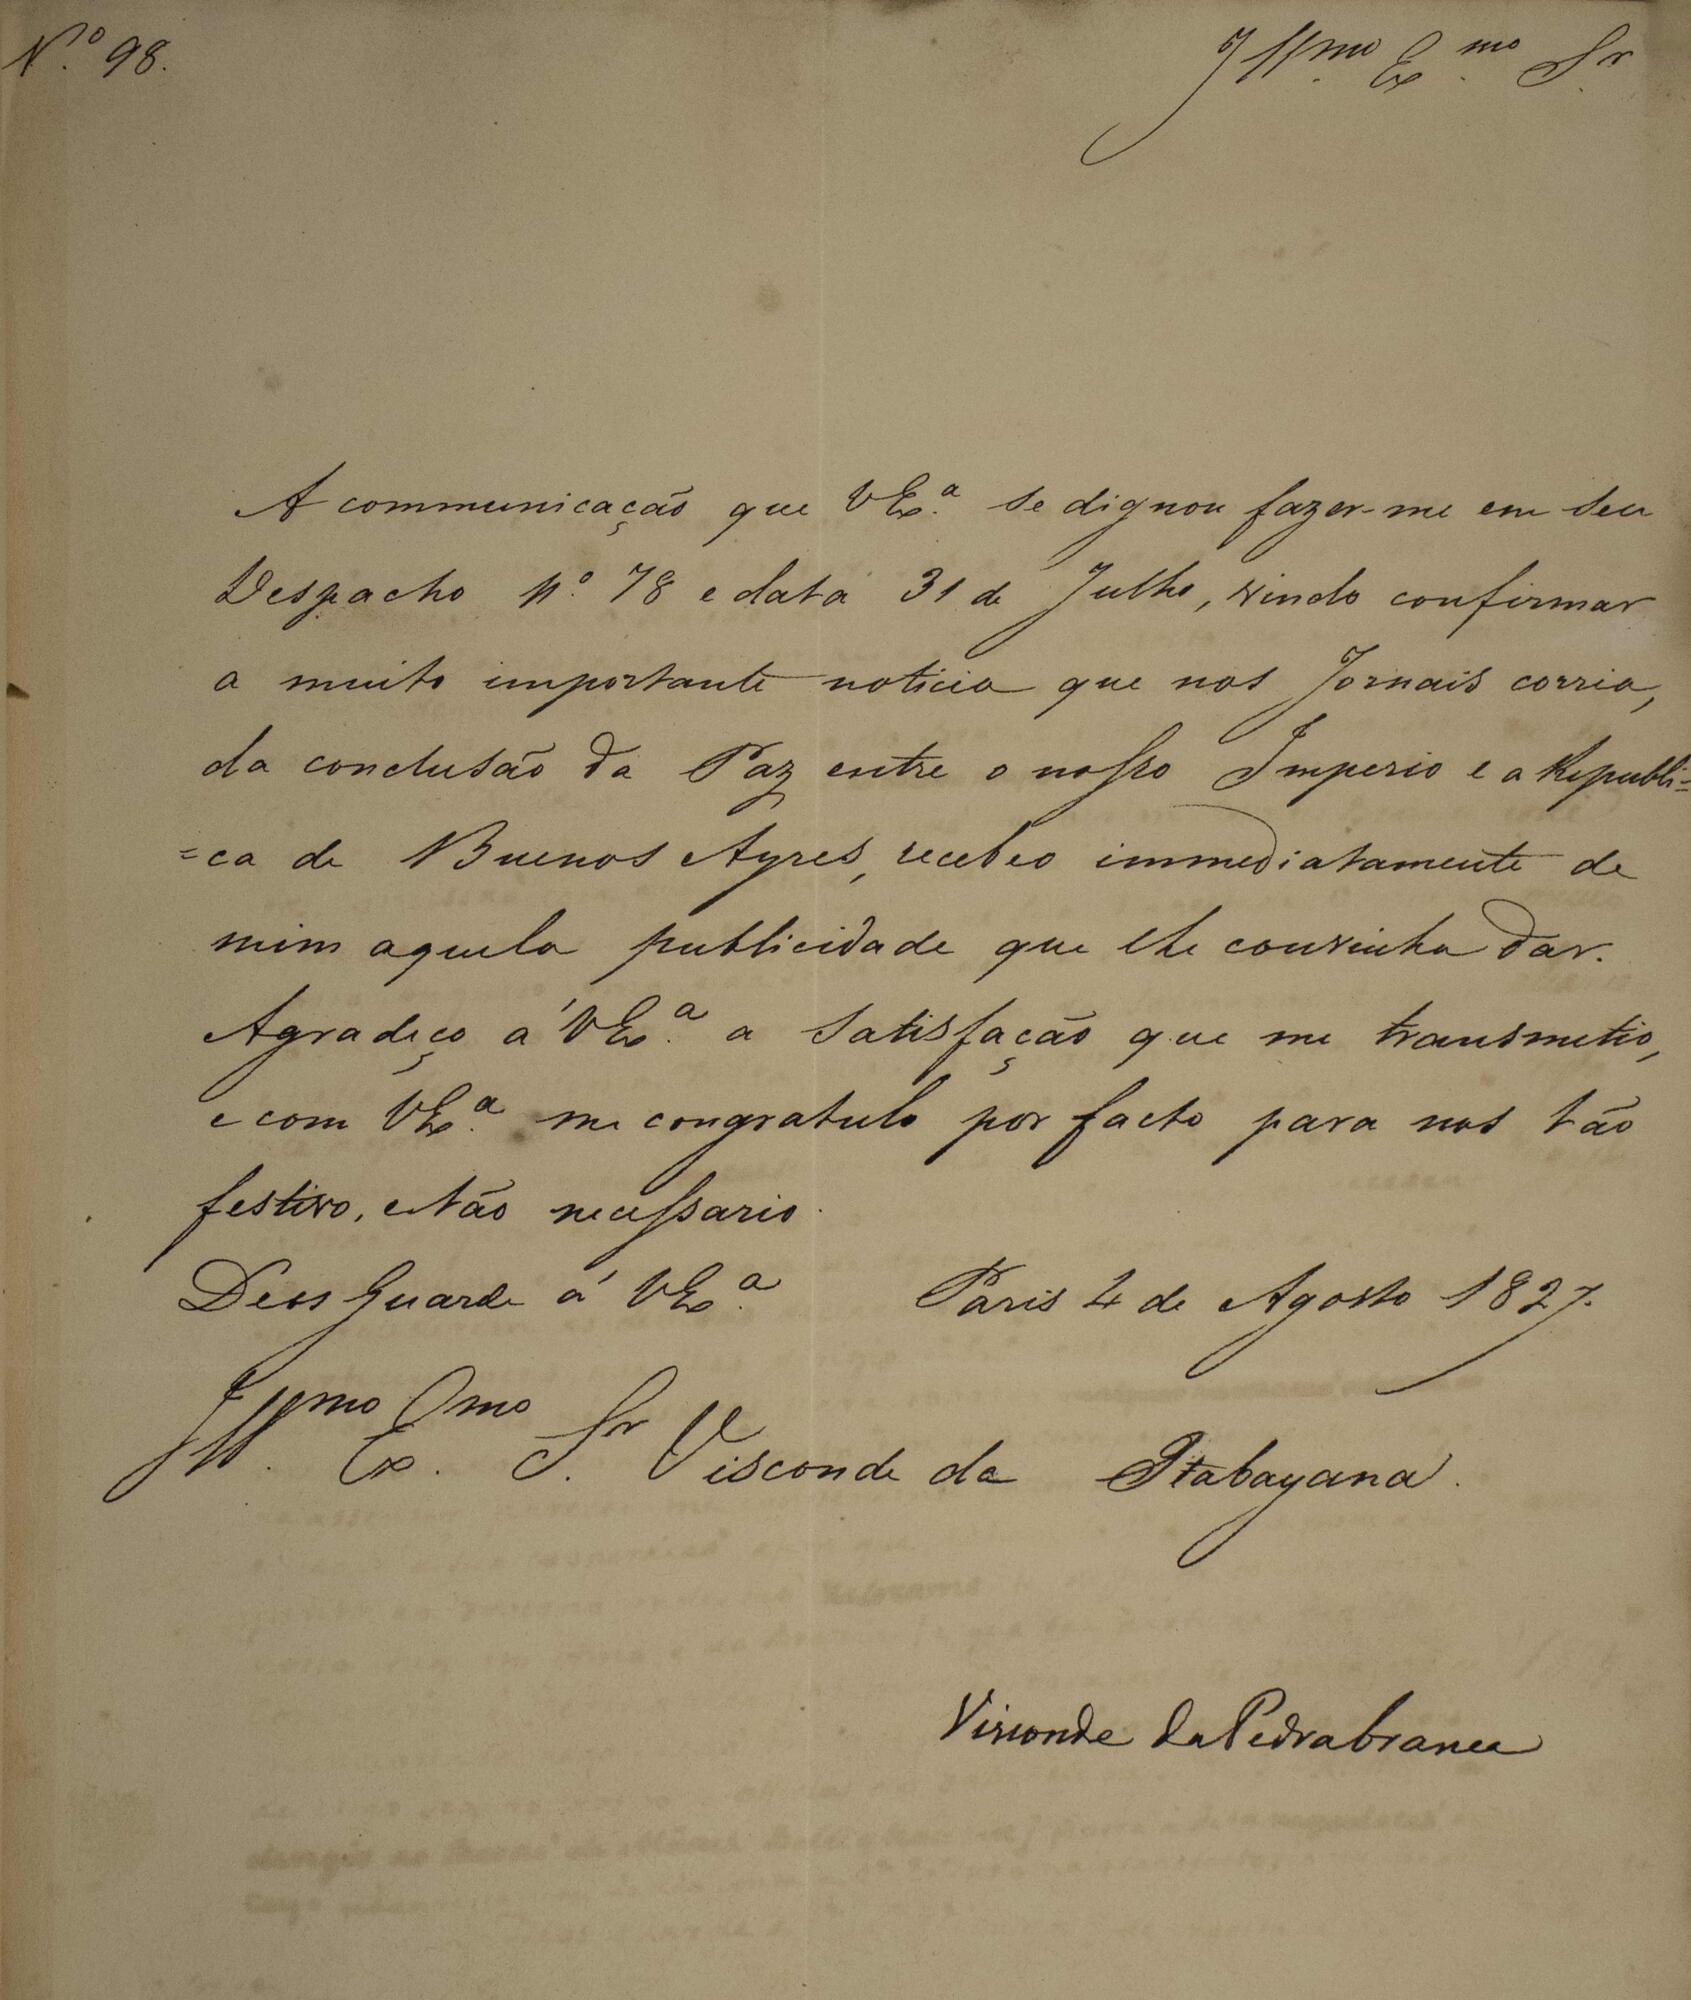 N.º 98.
Illmo Exmo Sr
A communicação que VExª se dignou fazer-me em seu
Despacho nº 78 e data 31 de Julho, vindo confirmar
a muito importante noticia que nos Jornais corria,
da conclusão da Paz entre o nosso Imperio e a Republi=
=ca de Buenos Ayres, recebeo immediatamente de
mim aquela publicidade que lhe convinha dar.
Agradeço á VExª a satisfação que me transmetio,
e com VExª me congratulo por facto para nos tão
festivo, e tão necessario.
Deos Guarde á VExª Paris 4 de Agosto 1827.
Illmo Exmo Sr Visconde da Itabayana.
Visconde da Pedrabranca